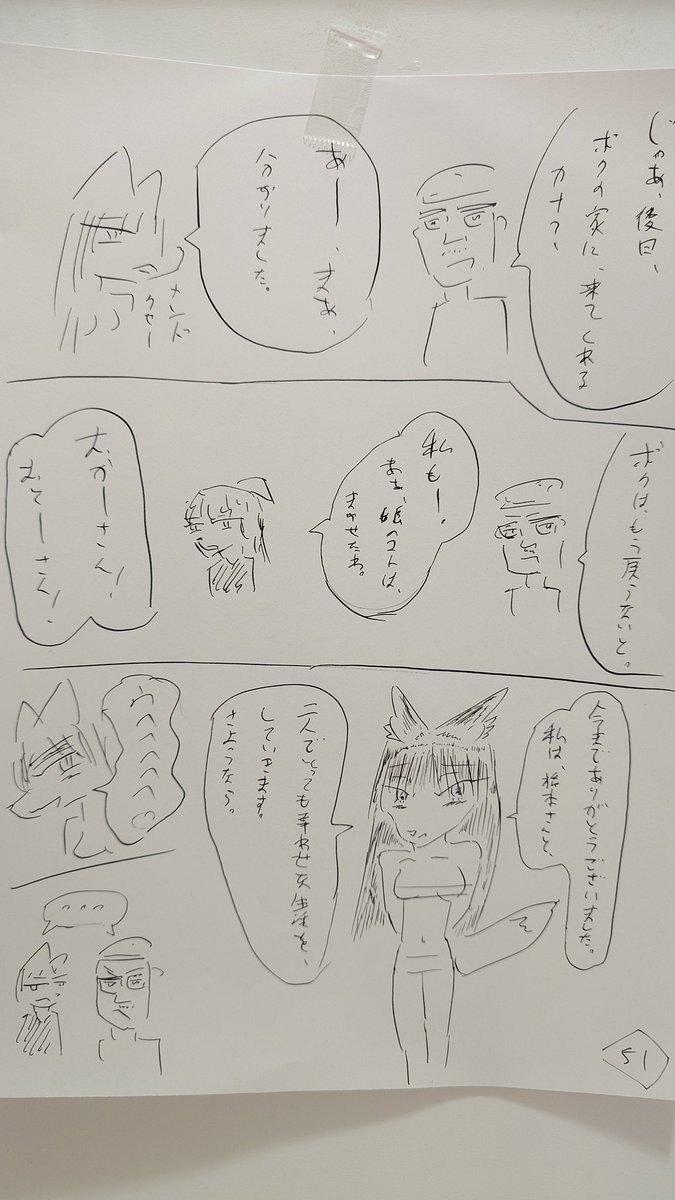 じゃあ、後日、
ボクの家に、来てくれる
カナ?、
あー、まあ、
分かりました。
メンド
クセー
ボクは、もう戻らないと。
私もー、
ああ、娘のコトは、
まかせたわ。
おかーさん!、
おとーさん!、
今までありがとうございました。
私は、橋本さんと、
二人でとっても幸わせな生活を、
していきます。
さようなら。
ウヘヘヘヘヘ
・・・・
51